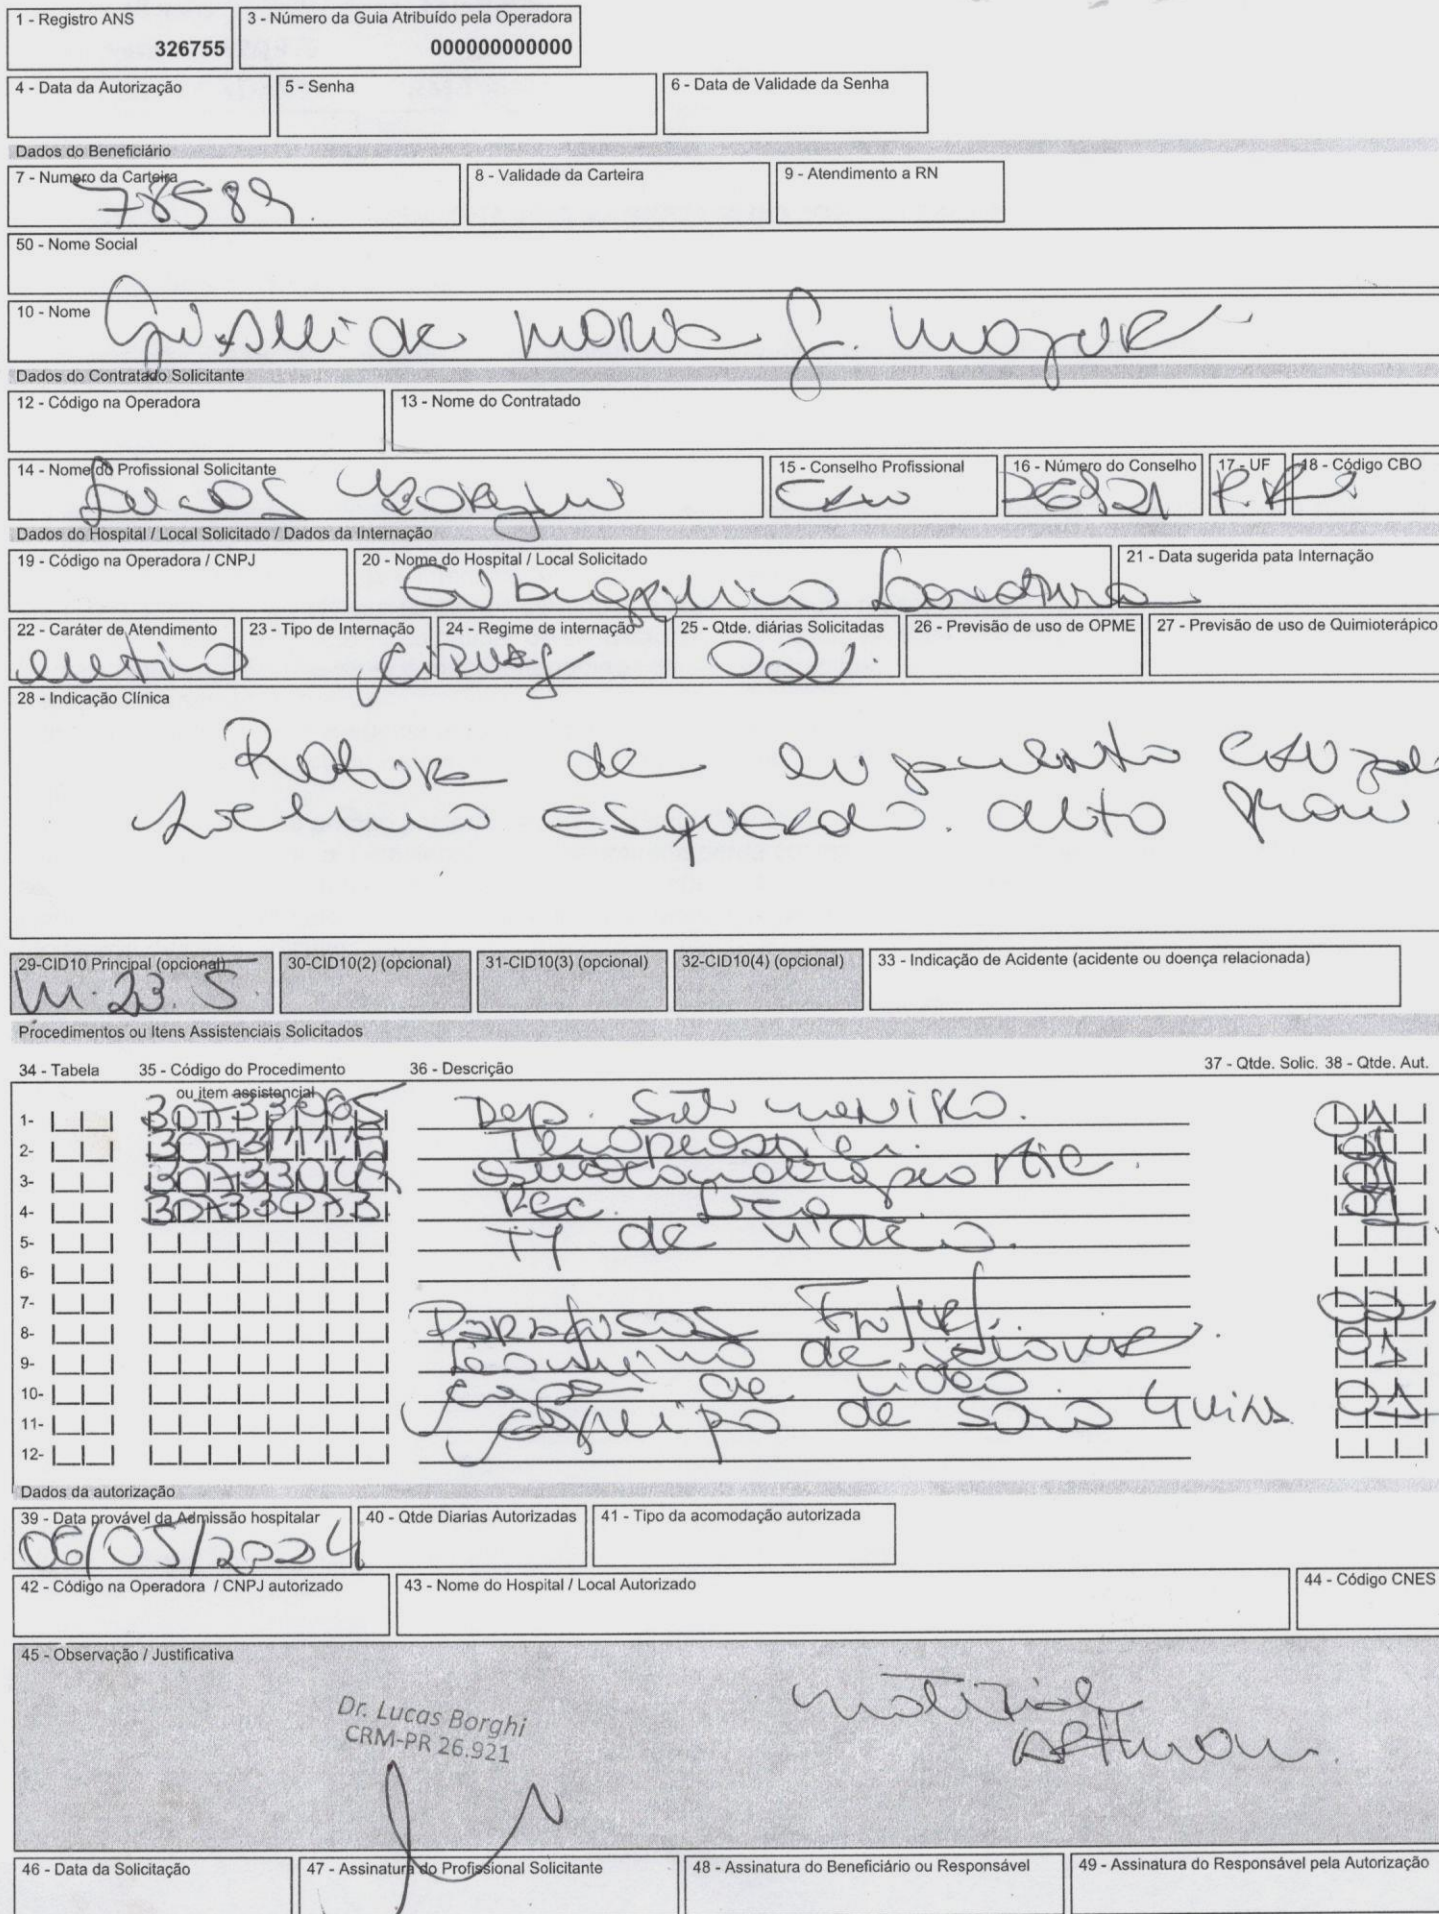 1 - Registro ANS
326755
3 - Número da Guia Atribuído pela Operadora
000000000000
4 - Data da Autorização
5 - Senha
6 - Data de Validade da Senha
Dados do Beneficiário
7 - Numero da Carteira
78589.
8 - Validade da Carteira
9 - Atendimento a RN
50 - Nome Social
10 - Nome
Maria
Dados do Contratado Solicitante
12 - Código na Operadora
13 - Nome do Contratado
14 - Nome do Profissional Solicitante
Lucas Borghi
15 - Conselho Profissional
CRM
16 - Número do Conselho
26921
17 - UF
PR
18 - Código CBO
Dados do Hospital / Local Solicitado / Dados da Internação
19 - Código na Operadora / CNPJ
20 - Nome do Hospital / Local Solicitado
Londrina
21 - Data sugerida pata Internação
22 - Caráter de Atendimento
eletivo
23 - Tipo de Internação
24 - Regime de internação
25 - Qtde. diárias Solicitadas
26 - Previsão de uso de OPME
27 - Previsão de uso de Quimioterápico
28 - Indicação Clínica
Rotura de ligamento
joelho esquerdo. alto grau.
29-CID10 Principal (opcional)
M. 23. 5.
30-CID10(2) (opcional)
31-CID10(3) (opcional)
32-CID10(4) (opcional)
33 - Indicação de Acidente (acidente ou doença relacionada)
Procedimentos ou Itens Assistenciais Solicitados
34 - Tabela
35 - Código do Procedimento
ou item assistencial
36 - Descrição
37 - Qtde. Solic.
38 - Qtde. Aut.
1-
01
2-
01
3-
01
4- 30733073 Rec.
01
5- de video.
6-
7-
8- Parafusos
02
9- de
01
10- capa de video.
11- equipo de soro 4 vias
01
12-
Dados da autorização
39 - Data provável da Admissão hospitalar
06/05/2024
40 - Qtde Diarias Autorizadas
41 - Tipo da acomodação autorizada
42 - Código na Operadora / CNPJ autorizado
43 - Nome do Hospital / Local Autorizado
44 - Código CNES
45 - Observação / Justificativa
Dr. Lucas Borghi
CRM-PR 26.921
material
46 - Data da Solicitação
47 - Assinatura do Profissional Solicitante
48 - Assinatura do Beneficiário ou Responsável
49 - Assinatura do Responsável pela Autorização